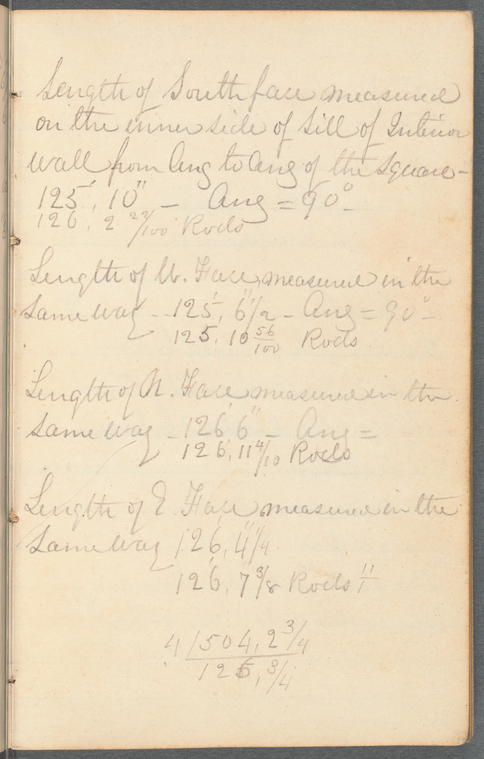 Length of South face measured
on the inner side of Sill of Interior
wall from Ang to Ang of the square –
125', 10" – Ang = 90° –
126, 2 22/100 Rods
Length of W. Face measured in the
same way – 125', 6"/2 – Ang = 90° –
125. 10 56/100 Rods
Length of N. Face measured in the
same way – 126' 6" – Ang =
126, 11 4/10 Rods
Length of E. Face measured in the
same way 126, 4"/4
126, 7 3/8 Rods
4/504, 2 3/4
126, 3/4